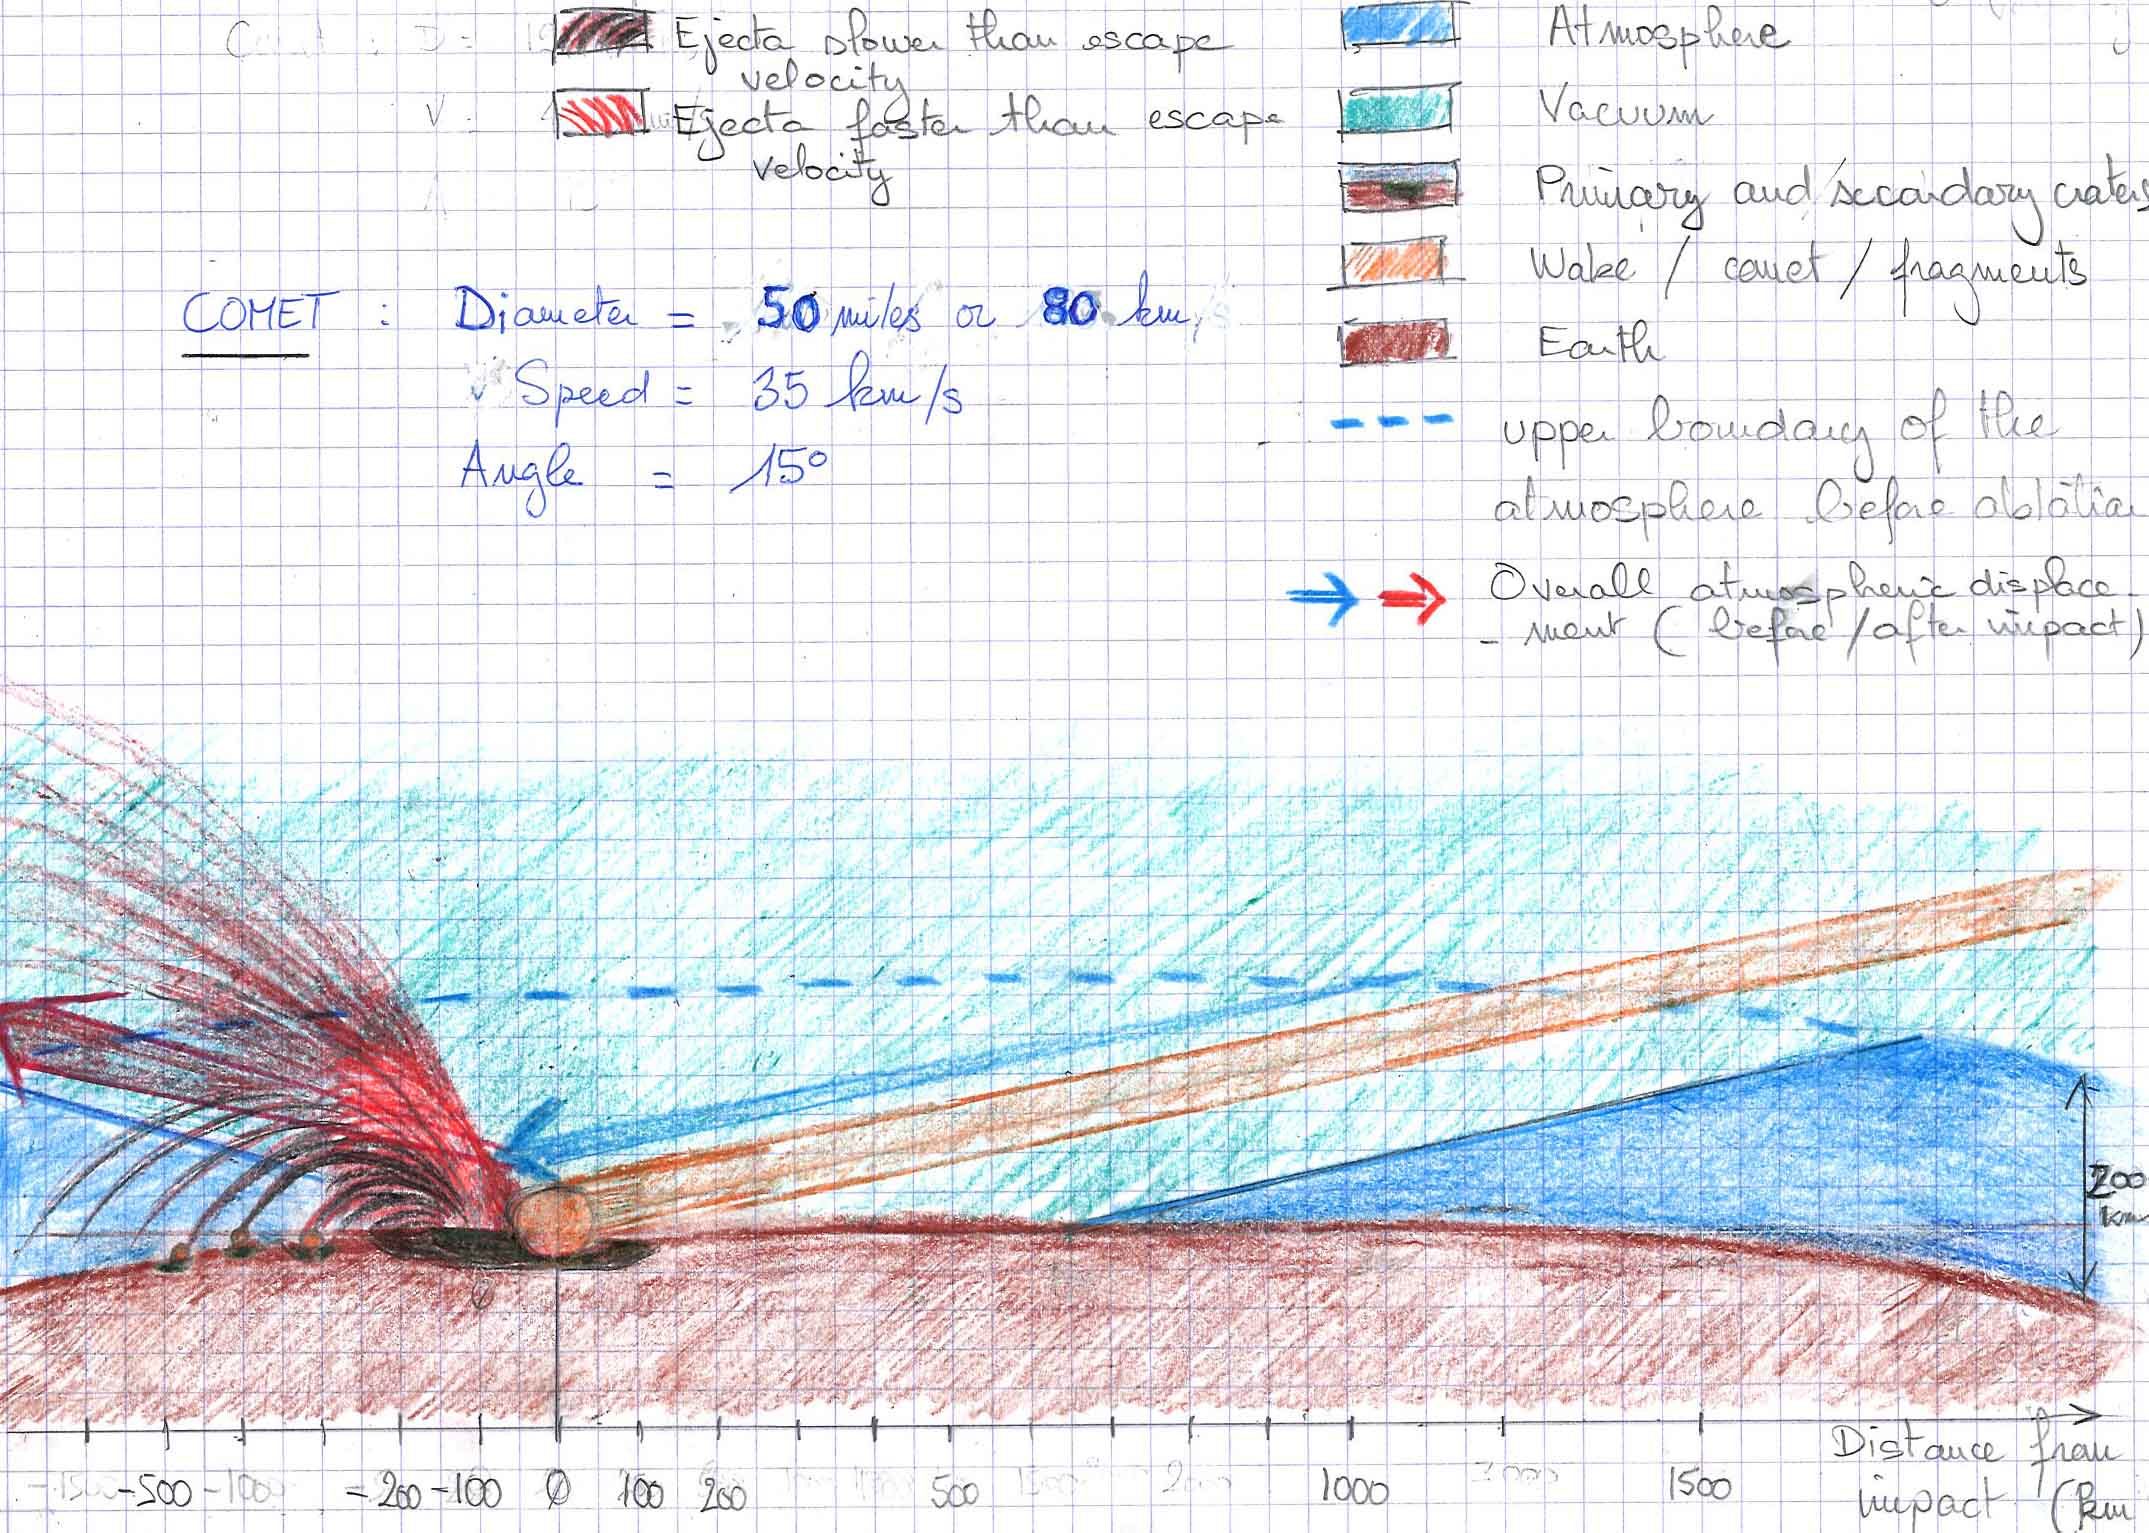 Ejecta slower than escape
velocity
Ejecta faster than escape
velocity
Atmosphere
Vacuum
Primary and secondary craters
Wake / comet / fragments
Earth
upper boundary of the
atmosphere before ablation
Overall atmospheric displace-
- ment (before / after impact)
COMET : Diameter = 50 miles or 80 km
Speed = 35 km/s
Angle = 15°
200
km
-500 -200 -100 0 100 200 500 1000 1500
Distance from
impact (km